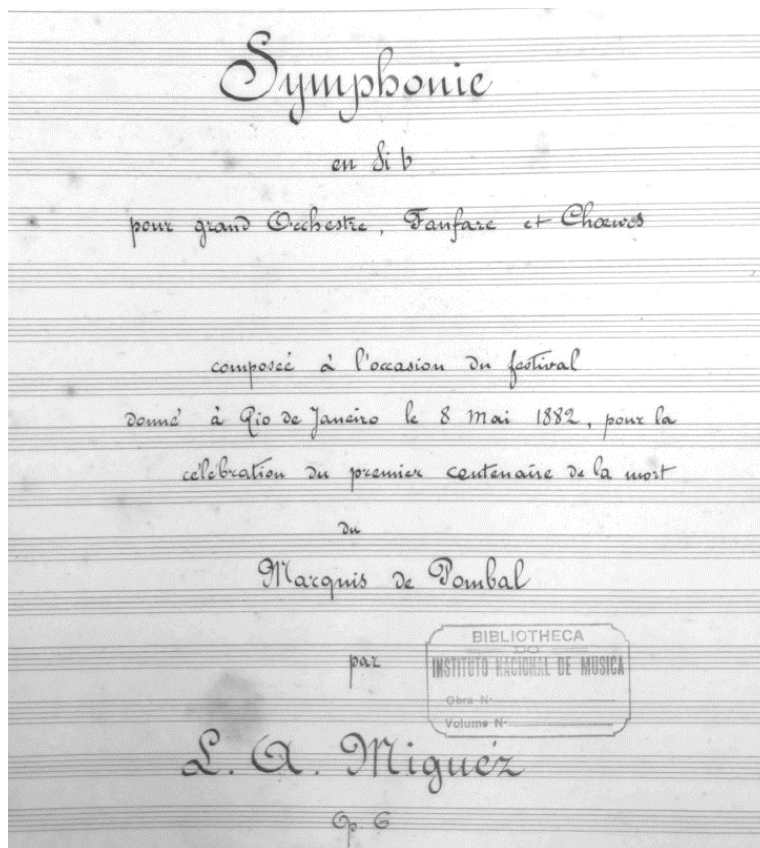 Symphonie
en Si b
pour grand Orchestre, Fanfare et Chœurs
composée à l'occasion du festival
donné à Rio de Janeiro le 8 Mai 1882, pour la
célébration du premier centenaire de la mort
du
Marquis de Pombal
par
BIBLIOTHECA
DO
INSTITUTO NACIONAL DE MUSICA
Obra N.
Volume N.
L. A. Miguéz
Op. 6